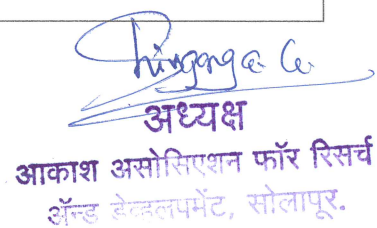 अध्यक्ष
आकाश असोसिएशन फॉर रिसर्च
ॲन्ड डेव्हलपमेंट, सोलापूर.